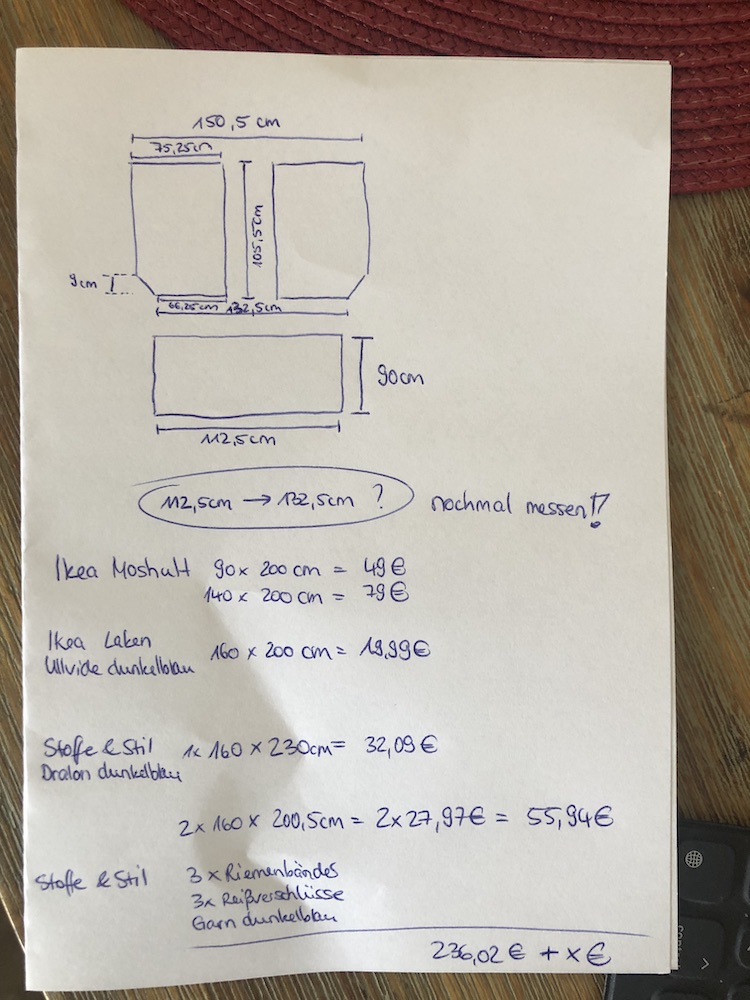 150,5 cm
75,25cm
105,5cm
9cm
66,25cm 132,5cm
90cm
112,5cm
112,5cm → 132,5cm ? nochmal messen!?
Ikea Moshult 90 x 200 cm = 49€
140 x 200 cm = 79€
Ikea Laken 160 x 200 cm = 19,99€
Ullvide dunkelblau
Stoffe & Stil 1x 160 x 230cm = 32,09€
Dralon dunkelblau
2 x 160 x 200,5cm = 2x27,97€ = 55,94€
Stoffe & Stil 3 x Riemenbändes
3x Reißverschlüsse
Garn dunkelblau
236,02€ + x€